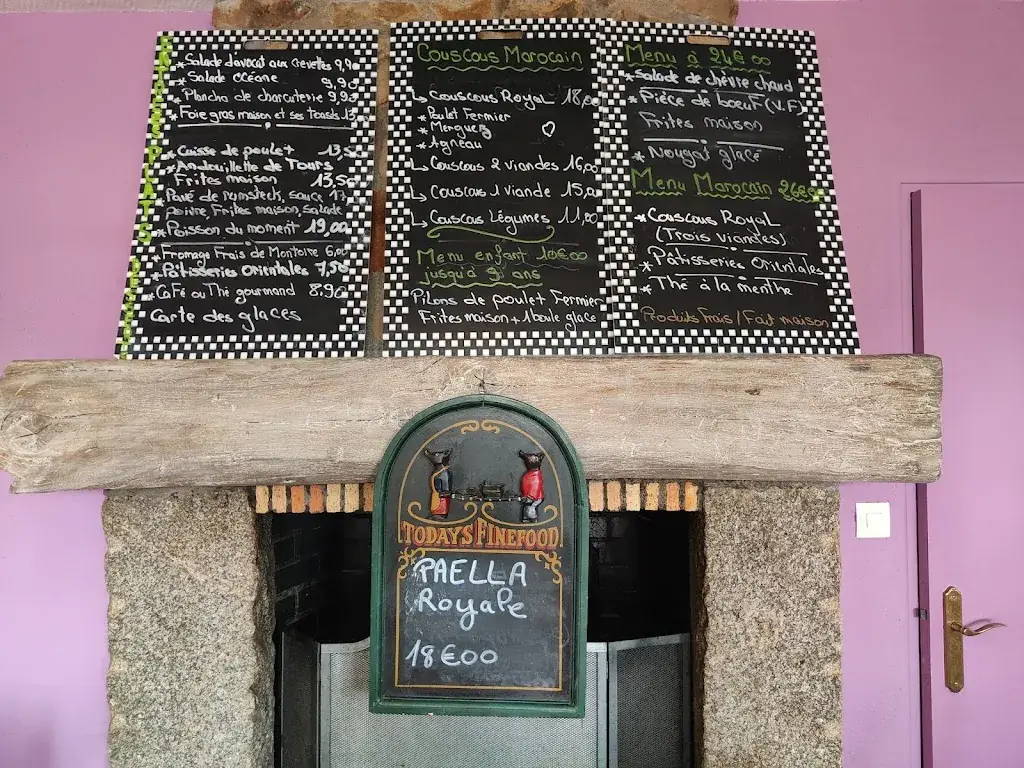 Salade d'avocat aux crevettes 9,90
Salade océane 9,90
Plancha de charcuterie 9,90
Foie gras maison et ses toasts 13
PLATS
Cuisse de poulet 13,50
Andouillette de Tours
Frites maison 13,50
Pavé de rumsteck, sauce
poivre, Frites maison, Salade
Poisson du moment 19,00
Fromage Frais de Montoire 6,00
Pâtisseries Orientales 7,50
Café ou Thé gourmand 8.90
Carte des glaces
Couscous Marocain
Couscous Royal 18,00
Poulet Fermier
Merguez
Agneau
Couscous 2 viandes 16,00
Couscous 1 viande 15,00
Couscous Légumes 11,00
Menu enfant 10€00
jusqu'à 9 ans
Pilons de poulet Fermier
Frites maison + 1 boule glace
Menu à 24€00
Salade de chèvre chaud
Pièce de boeuf (V.F)
Frites maison
Nougat glacé
Menu Marocain 26€
Couscous Royal
(Trois viandes)
Pâtisseries Orientales
Thé à la menthe
Produits Frais / Fait maison
TODAYS FINEFOOD
PAELLA
Royale
18€00